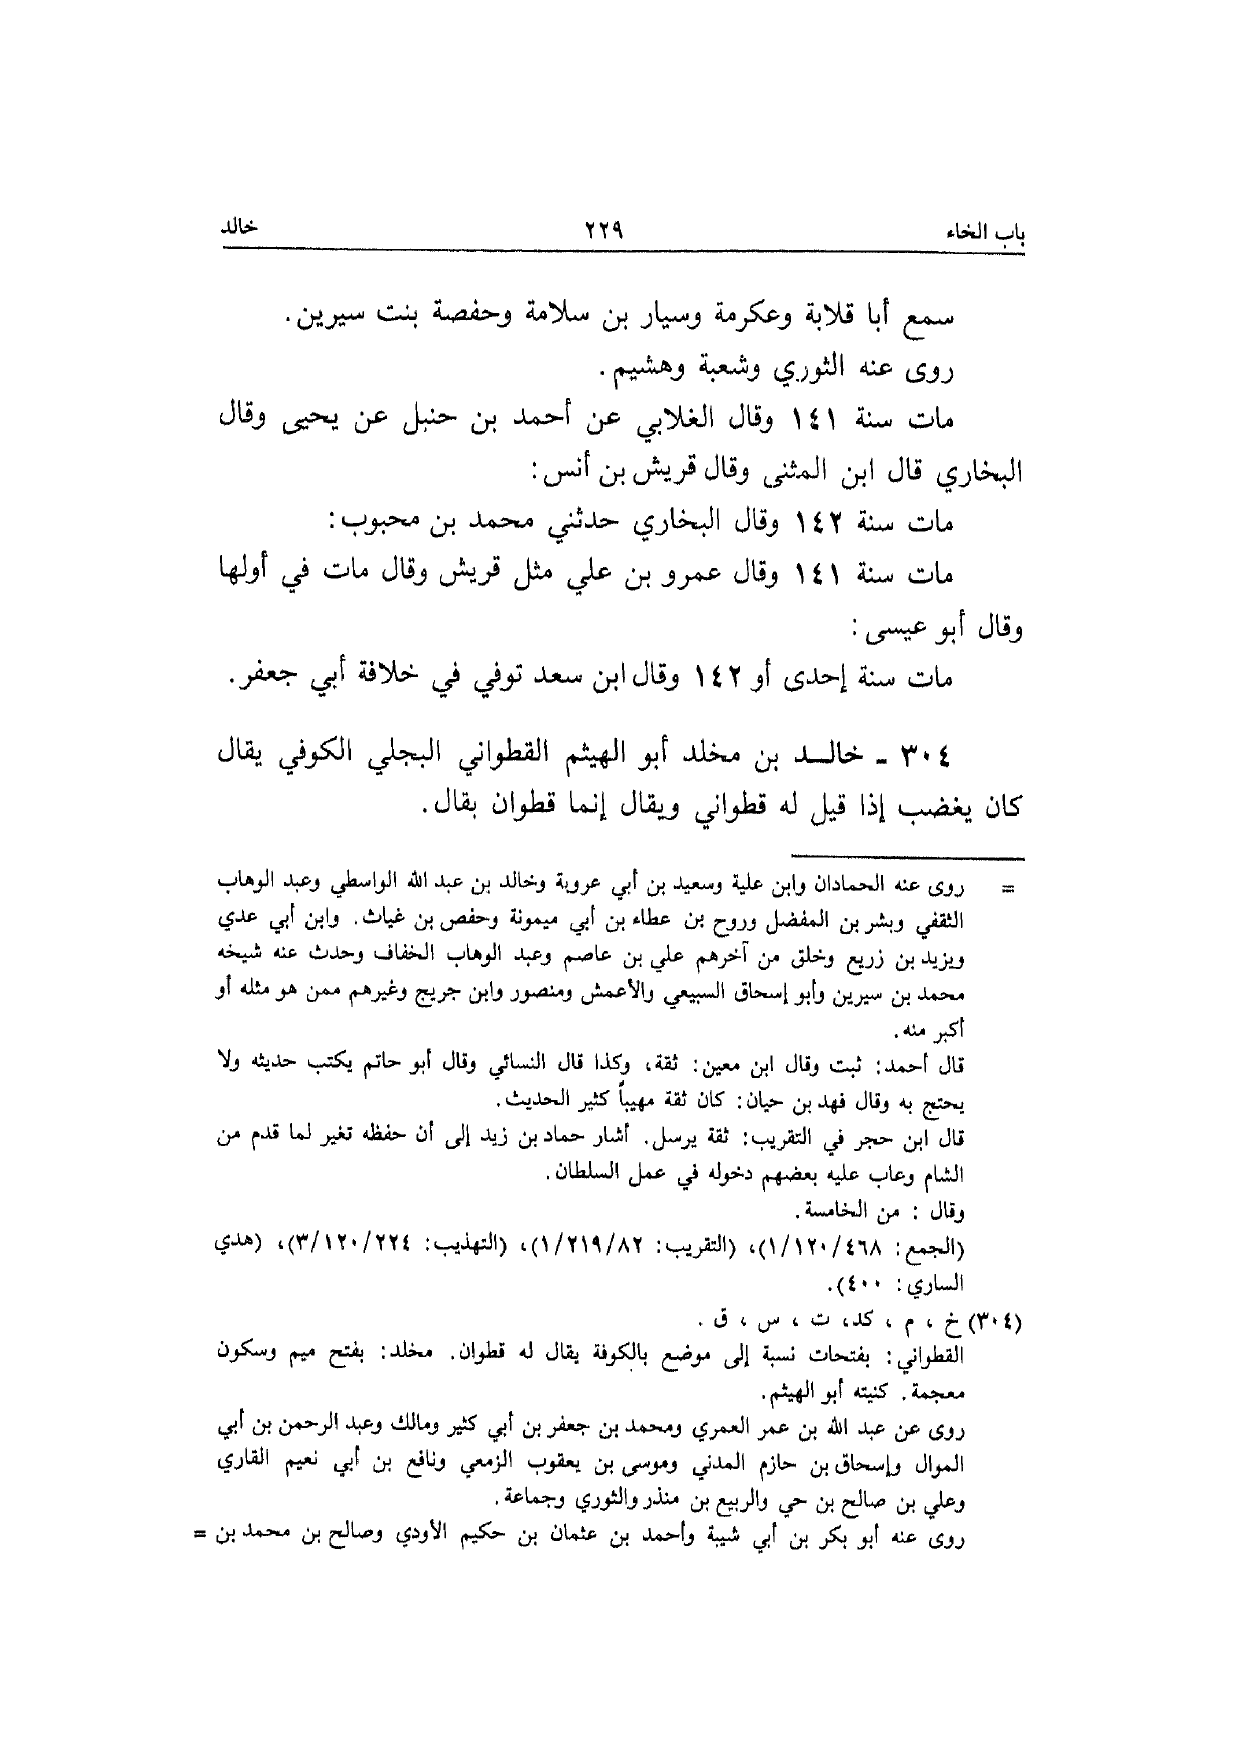 باب الخاء ٢٢٩ خالد
سمع أبا قلابة وعكرمة وسيار بن سلامة وحفصة بنت سيرين.
روى عنه الثوري وشعبة وهشيم.
مات سنة ١٤١ وقال الغلابي عن أحمد بن حنبل عن يحيى وقال
البخاري قال ابن المثنى وقال قريش بن أنس:
مات سنة ١٤٢ وقال البخاري حدثني محمد بن محبوب:
مات سنة ١٤١ وقال عمرو بن علي مثل قريش وقال مات في أولها
وقال أبو عيسى:
مات سنة إحدى أو ١٤٢ وقال ابن سعد توفي في خلافة أبي جعفر.
٣٠٤ - خالـــد بن مخلد أبو الهيثم القطواني البجلي الكوفي يقال
كان يغضب إذا قيل له قطواني ويقال إنما قطوان بقال.
= روى عنه الحمادان وابن علية وسعيد بن أبي عروبة وخالد بن عبد الله الواسطي وعبد الوهاب
الثقفي وبشر بن المفضل وروح بن عطاء بن أبي ميمونة وحفص بن غياث. وابن أبي عدي
ويزيد بن زريع وخلق من آخرهم علي بن عاصم وعبد الوهاب الخفاف وحدث عنه شيخه
محمد بن سيرين وأبو إسحاق السبيعي والأعمش ومنصور وابن جريج وغيرهم ممن هو مثله أو
أكبر منه.
قال أحمد: ثبت وقال ابن معين: ثقة، وكذا قال النسائي وقال أبو حاتم يكتب حديثه ولا
يحتج به وقال فهد بن حيان: كان ثقة مهيباً كثير الحديث.
قال ابن حجر في التقريب: ثقة يرسل. أشار حماد بن زيد إلى أن حفظه تغير لما قدم من
الشام وعاب عليه بعضهم دخوله في عمل السلطان.
وقال : من الخامسة.
(الجمع: ١/١٢٠/٤٦٨)، (التقريب: ١/٢١٩/٨٢)، (التهذيب: ٣/١٢٠/٢٢٤)، (هدي
الساري: ٤٠٠).
(٣٠٤) خ ، م ، كد، ت ، س ، ق .
القطواني: بفتحات نسبة إلى موضع بالكوفة يقال له قطوان. مخلد: بفتح ميم وسكون
معجمة. كنيته أبو الهيثم.
روى عن عبد الله بن عمر العمري ومحمد بن جعفر بن أبي كثير ومالك وعبد الرحمن بن أبي
الموال وإسحاق بن حازم المدني وموسى بن يعقوب الزمعي ونافع بن أبي نعيم القاري
وعلي بن صالح بن حي والربيع بن منذر والثوري وجماعة.
روى عنه أبو بكر بن أبي شيبة وأحمد بن عثمان بن حكيم الأودي وصالح بن محمد بن =